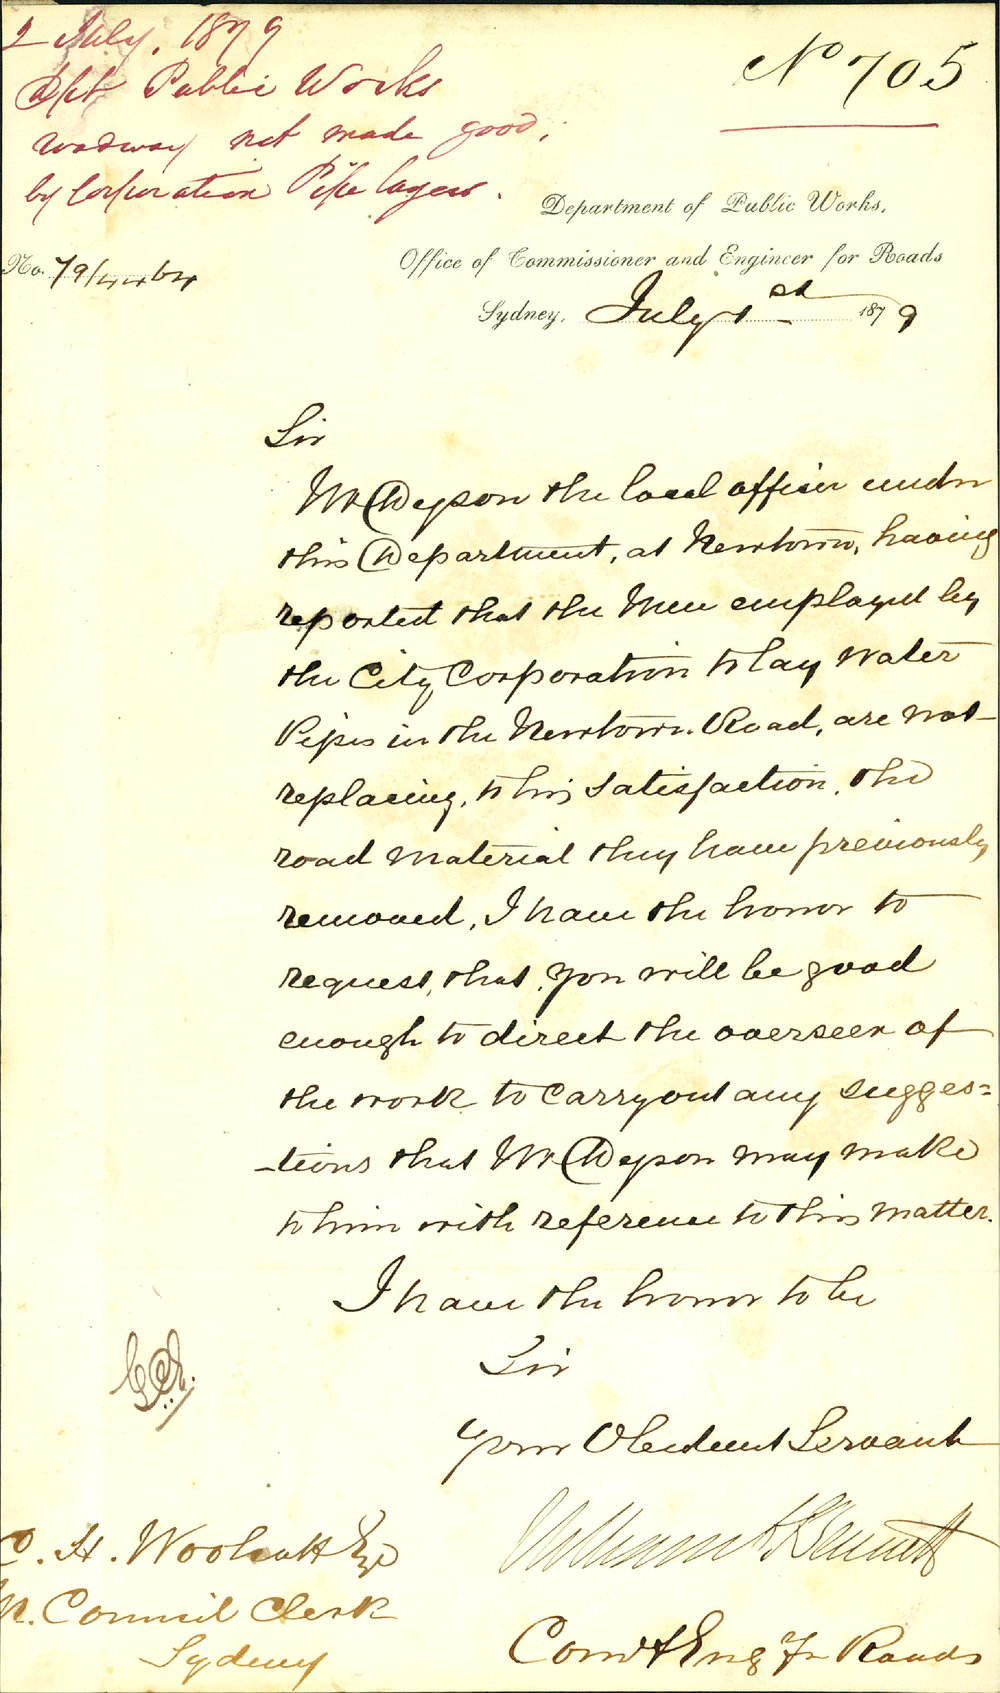 2 July, 1879
Dpt Public Works
roadway not made good,
by Corporation Pipe layers.
No 705
Department of Public Works,
Office of Commissioner and Engineer for Roads
No. 79/4464
Sydney, July 1st 1879
Sir
Mr Deyson the local officer under
this Department, at Newtown, having
reported that the Men employed by
the City Corporation to lay water
Pipes in the Newtown Road, are not
replacing, to his satisfaction, the
road material they have previously
removed, I have the honor to
request, that, you will be good
enough to direct the overseer of
the work to carry out any sugges=
-tions that Mr Deyson may make
to him with reference to this matter.
I have the honor to be
Sir
Your Obedient Servant
William C Bennett
Com & Eng for Roads
C. H. Woolcott Esq
Council Clerk
Sydney